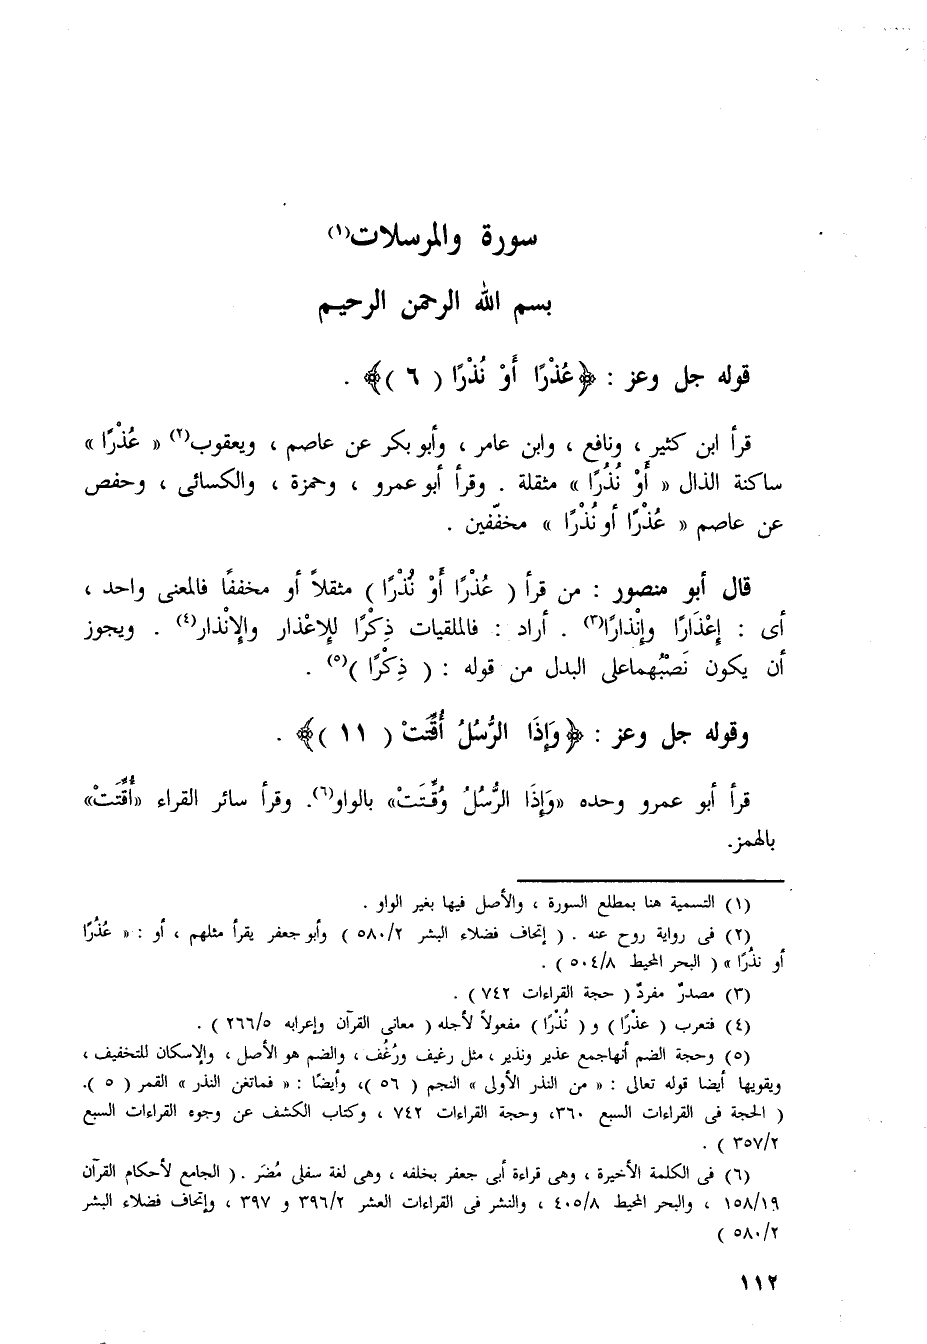 سورة والمرسلات(١)
بسم الله الرحمن الرحيم
قوله جل وعز : ﴿عُذْرًا أَوْ نُذْرًا ( ٦ )﴾ .
قرأ ابن كثير ، ونافع ، وابن عامر ، وأبو بكر عن عاصم ، ويعقوب(٢) « عُذْرًا »
ساكنة الذال « أَوْ نُذُرًا » مثقلة . وقرأ أبو عمرو ، وحمزة ، والكسائى ، وحفص
عن عاصم « عُذْرًا أو نُذْرًا » مخفّفين .
قال أبو منصور : من قرأ ( عُذْرًا أَوْ نُذْرًا ) مثقلاً أو مخففًا فالمعنى واحد ،
أى : إِعْذَارًا وإِنْذارًا(٣) . أراد : فالملقيات ذِكْرًا للإعْذار والإنْذار(٤) . ويجوز
أن يكون نَصْبُهماعلى البدل من قوله : ( ذِكْرًا )(٥) .
وقوله جل وعز : ﴿وَإِذَا الرُّسُلُ أُقِّتَتْ ( ١١ )﴾ .
قرأ أبو عمرو وحده «وَإِذَا الرُّسُلُ وُقِّتَتْ» بالواو(٦). وقرأ سائر القراء «أُقِّتَتْ»
بالهمز.
(١) التسمية هنا بمطلع السورة ، والأصل فيها بغير الواو .
(٢) فى رواية روح عنه . ( إتحاف فضلاء البشر ٥٨٠/٢ ) وأبو جعفر يقرأ مثلهم ، أو : « عُذُرًا
أو نذُرًا » ( البحر المحيط ٥٠٤/٨ ) .
(٣) مصدرٌ مفردٌ ( حجة القراءات ٧٤٢ ) .
(٤) فتعرب ( عذْرًا ) و ( نُذْرًا ) مفعولاً لأجله ( معانى القرآن وإعرابه ٢٦٦/٥ ) .
(٥) وحجة الضم أنهاجمع عذير ونذير ، مثل رغيف ورُغُف ، والضم هو الأصل ، والإسكان للتخفيف ،
ويقويها أيضا قوله تعالى : « من النذر الأولى » النجم ( ٥٦ )، وأيضًا : « فماتغن النذر » القمر ( ٥ ).
( الحجة فى القراءات السبع ٣٦٠، وحجة القراءات ٧٤٢ ، وكتاب الكشف عن وجوه القراءات السبع
٣٥٧/٢ ) .
(٦) فى الكلمة الأخيرة ، وهى قراءة أبى جعفر بخلفه ، وهى لغة سفلى مُضَر . ( الجامع لأحكام القرآن
١٥٨/١٩ ، والبحر المحيط ٤٠٥/٨ ، والنشر فى القراءات العشر ٣٩٦/٢ و ٣٩٧ ، وإتحاف فضلاء البشر
٥٨٠/٢ )
١١٢